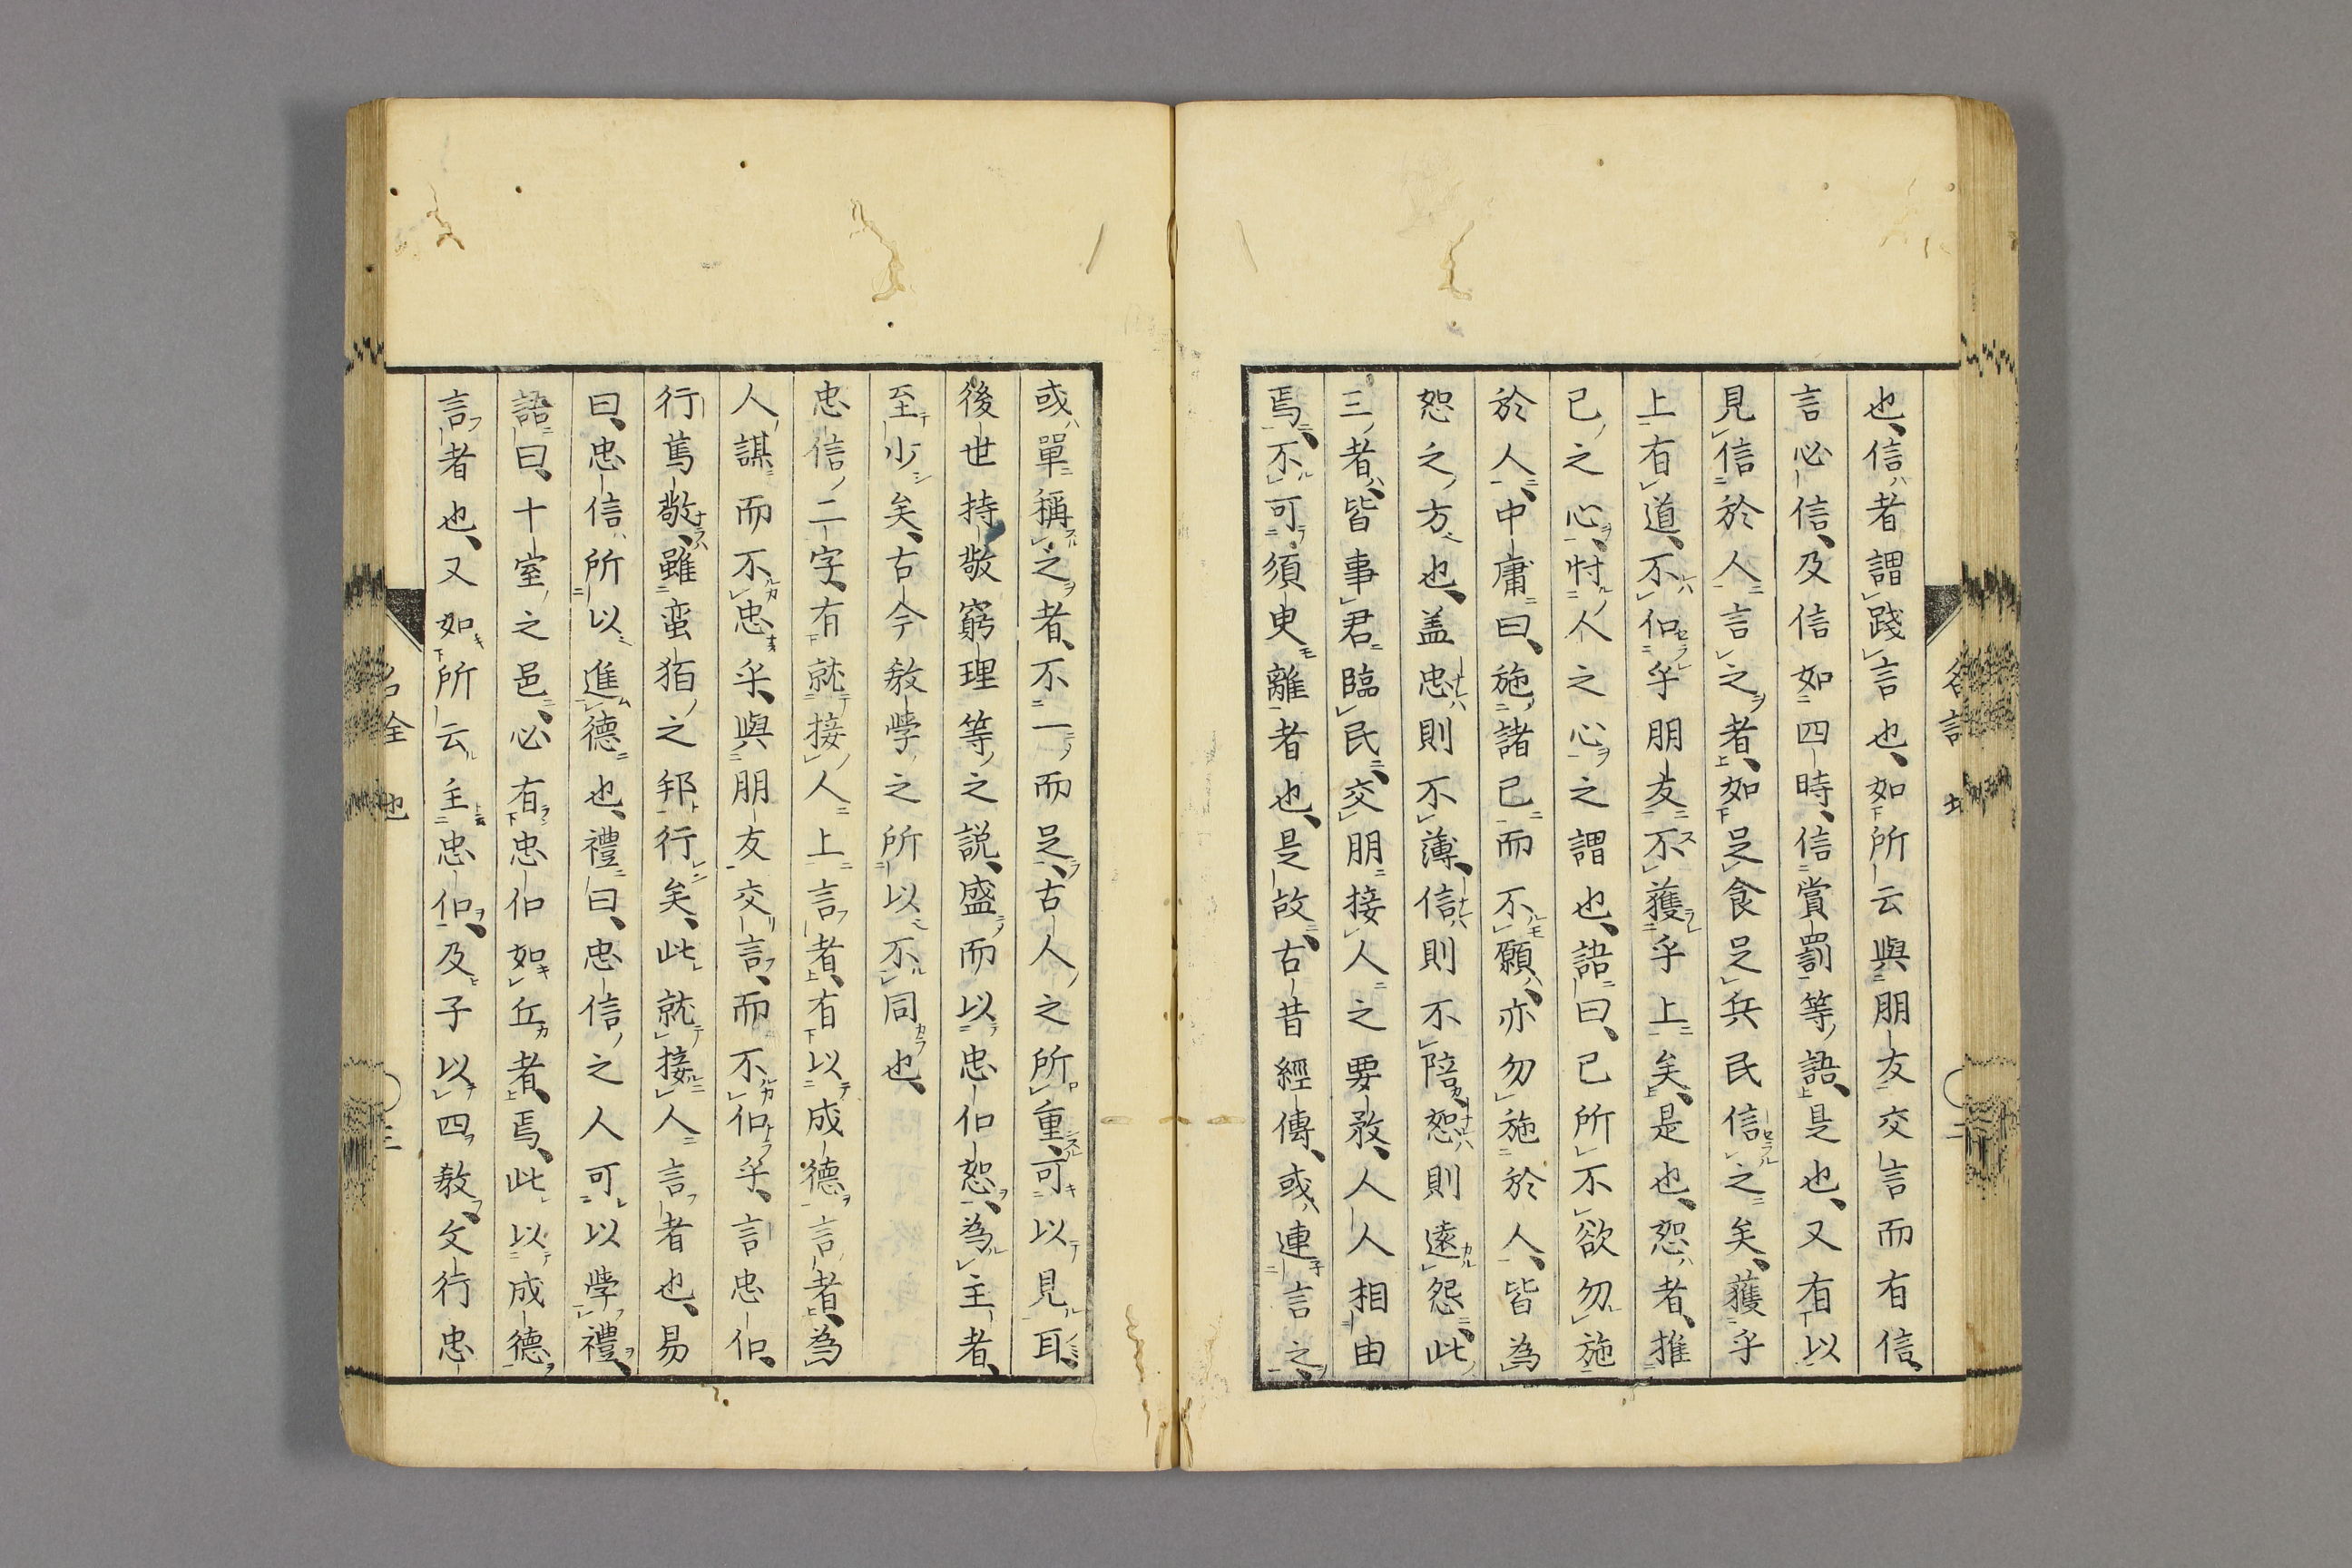 也、信者謂踐言也、如所云與朋友交言而有信、
言必信、及信如四時、信賞罰等語、是也、又有以
見信於人言之者、如足食足兵民信之矣、獲乎
上有道、不㐰乎朋友不獲乎上矣、是也、恕者、推
己之心、忖人之心之謂也、語曰、己所不欲勿施
於人、中庸曰、施諸己而不願、亦勿施於人、皆為
恕之方也、盖忠則不薄、信則不陪、恕則遠怨、此
三者、皆事君臨民、交朋接人之要務、人人相由
焉、不可須臾離者也、是故、古昔經傳、或連言之、
或單稱之者、不一而足、古人之所重、可以見耳、
後世持敬窮理等之説、盛而以忠㐰恕、為主者、
至少矣、古今教學之所以不同也、
忠信二字、有就接人上言者、有以成德言者、為
人謀而不忠乎、與朋友交言、而不㐰乎、言忠㐰、
行篤敬、雖蛮狛之邦行矣、此就接人言者也、易
曰、忠信所以進德也、禮曰、忠信之人可以學禮、
語曰、十室之邑、必有忠㐰如丘者焉、此以成德
言者也、又如所云主忠㐰、及子以四教、文行忠